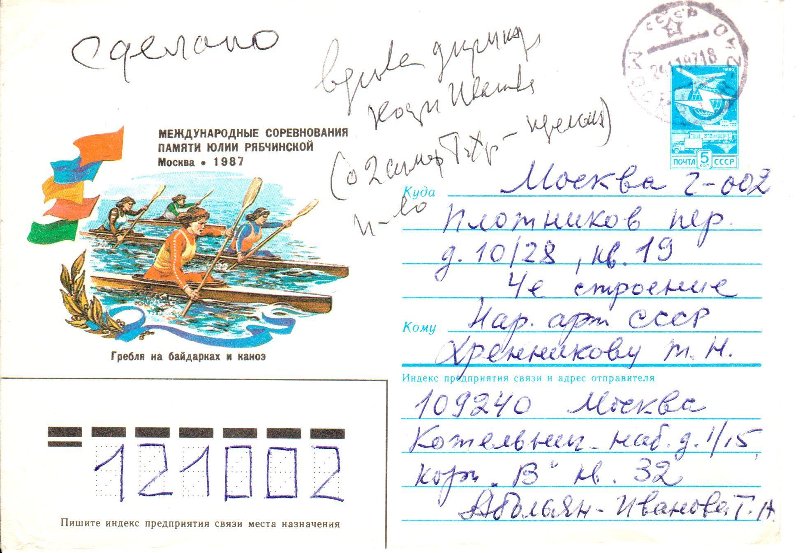 Сделано
вдова
МЕЖДУНАРОДНЫЕ СОРЕВНОВАНИЯ
ПАМЯТИ ЮЛИИ РЯБЧИНСКОЙ
Москва • 1987
Гребля на байдарках и каноэ
ПОЧТА 5 СССР
Куда Москва Г-002
Плотников пер.
д. 10/28, кв. 19
4е строение
Кому Нар. арт СССР
Хренникову Т. Н.
Индекс предприятия связи и адрес отправителя
109240 Москва
Котельнич. наб. д. 1/15,
корп "В" кв. 32
Абольян-Иванова Т. А.
121002
Пишите индекс предприятия связи места назначения